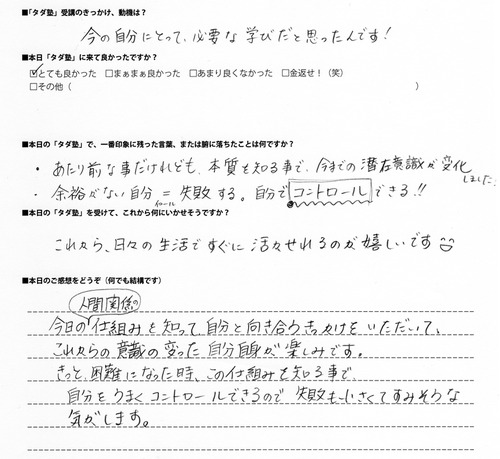 ■「タダ塾」受講のきっかけ、動機は？
今の自分にとって、必要な学びだと思ったんです！
■本日「タダ塾」に来て良かったですか？
☑とても良かった □まぁまぁ良かった □あまり良くなかった □金返せ！（笑）
□その他（ ）
■本日の「タダ塾」で、一番印象に残った言葉、または腑に落ちたことは何ですか？
・あたり前な事だけれども、本質を知る事で、今までの潜在意識が変化しました。
・余裕がない自分＝失敗する。自分でコントロールできる!!
イコール
■本日の「タダ塾」を受けて、これから何にいかせそうですか？
これから、日々の生活ですぐに活かせれるのが嬉しいです
■本日のご感想をどうぞ（何でも結構です）
人間関係の
今日の仕組みを知って自分と向き合うきっかけをいただいて、
これからの意識の変った自分自身が楽しみです。
きっと、困難になった時、この仕組みを知る事で、
自分をうまくコントロールできるので失敗も小さくてすみそうな
気がします。